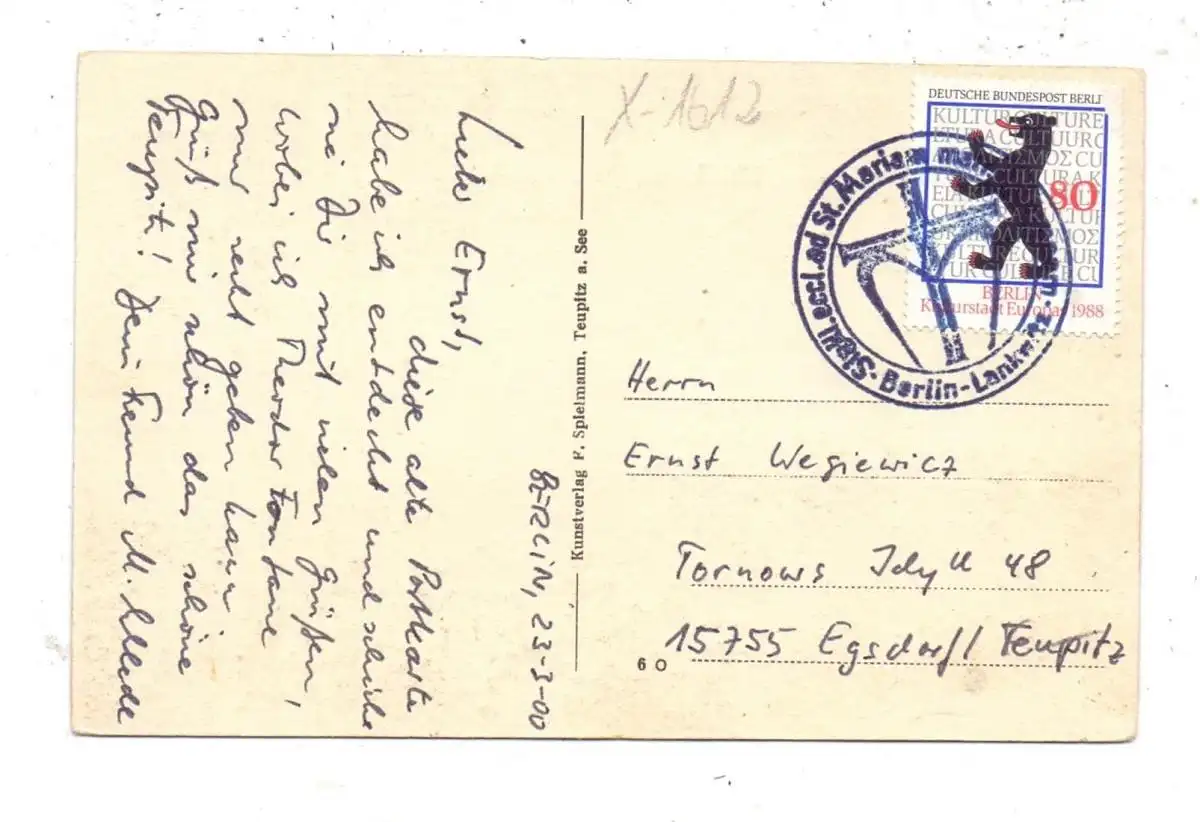 Lieber Ernst,
diese alte Postkarte
habe ich entdeckt und schicke
sie Dir mit vielen Grüßen,
wobei ich Theodor Fontane
nur recht geben kann
Grüß mir schön das schöne
Teupitz! Dein Freund M.
BERLIN, 23-3-00
Kunstverlag F. Spielmann, Teupitz a. See
X-1612
DEUTSCHE BUNDESPOST BERLI
KULTUR CULTURE
80
BERLIN
Kulturstadt Europas 1988
Sigil. eccl. ad St. Mariam
Berlin-Lankwitz
Herrn
Ernst Wegiewicz
Tornows Idyll 48
15755 Egsdorf/Teupitz
60